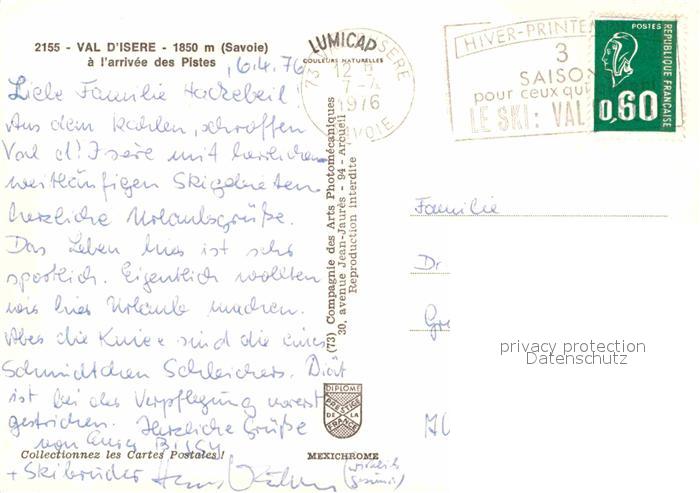 2155 - VAL D'ISERE - 1850 m (Savoie)
à l'arrivée des Pistes
LUMICAP
COULEURS NATURELLES
6.4.76
Liebe Familie Hackebeil!
Aus dem kahlen, schroffen
Val d'Isère mit herrlichen
weitläufigen Skigebieten
herzliche Urlaubsgrüße.
Das Leben hier ist sehr
sportlich. Eigentlich wollten
wir hier Urlaub machen.
Aber die Knie sind die eines
Schmidtchen Schleichers. Diät
ist bei der Verpflegung vorerst
gestrichen. Herzliche Grüße
von Eurer Bissy
+ Skibruder Hans
Collectionnez les Cartes Postales!
MEXICHROME
DIPLOME
PRESTIGE
DE LA
FRANCE
(73) Compagnie des Arts Photomécaniques
30, avenue Jean-Jaurès - 94 - Arcueil
Reproduction interdite
73 ISERE
12 H
7-4
1976
SAVOIE
HIVER-PRINTE
3
SAISON
pour ceux qui
LE SKI: VAL
POSTES
REPUBLIQUE FRANÇAISE
0,60
Familie
Dr
Gre
privacy protection
Datenschutz